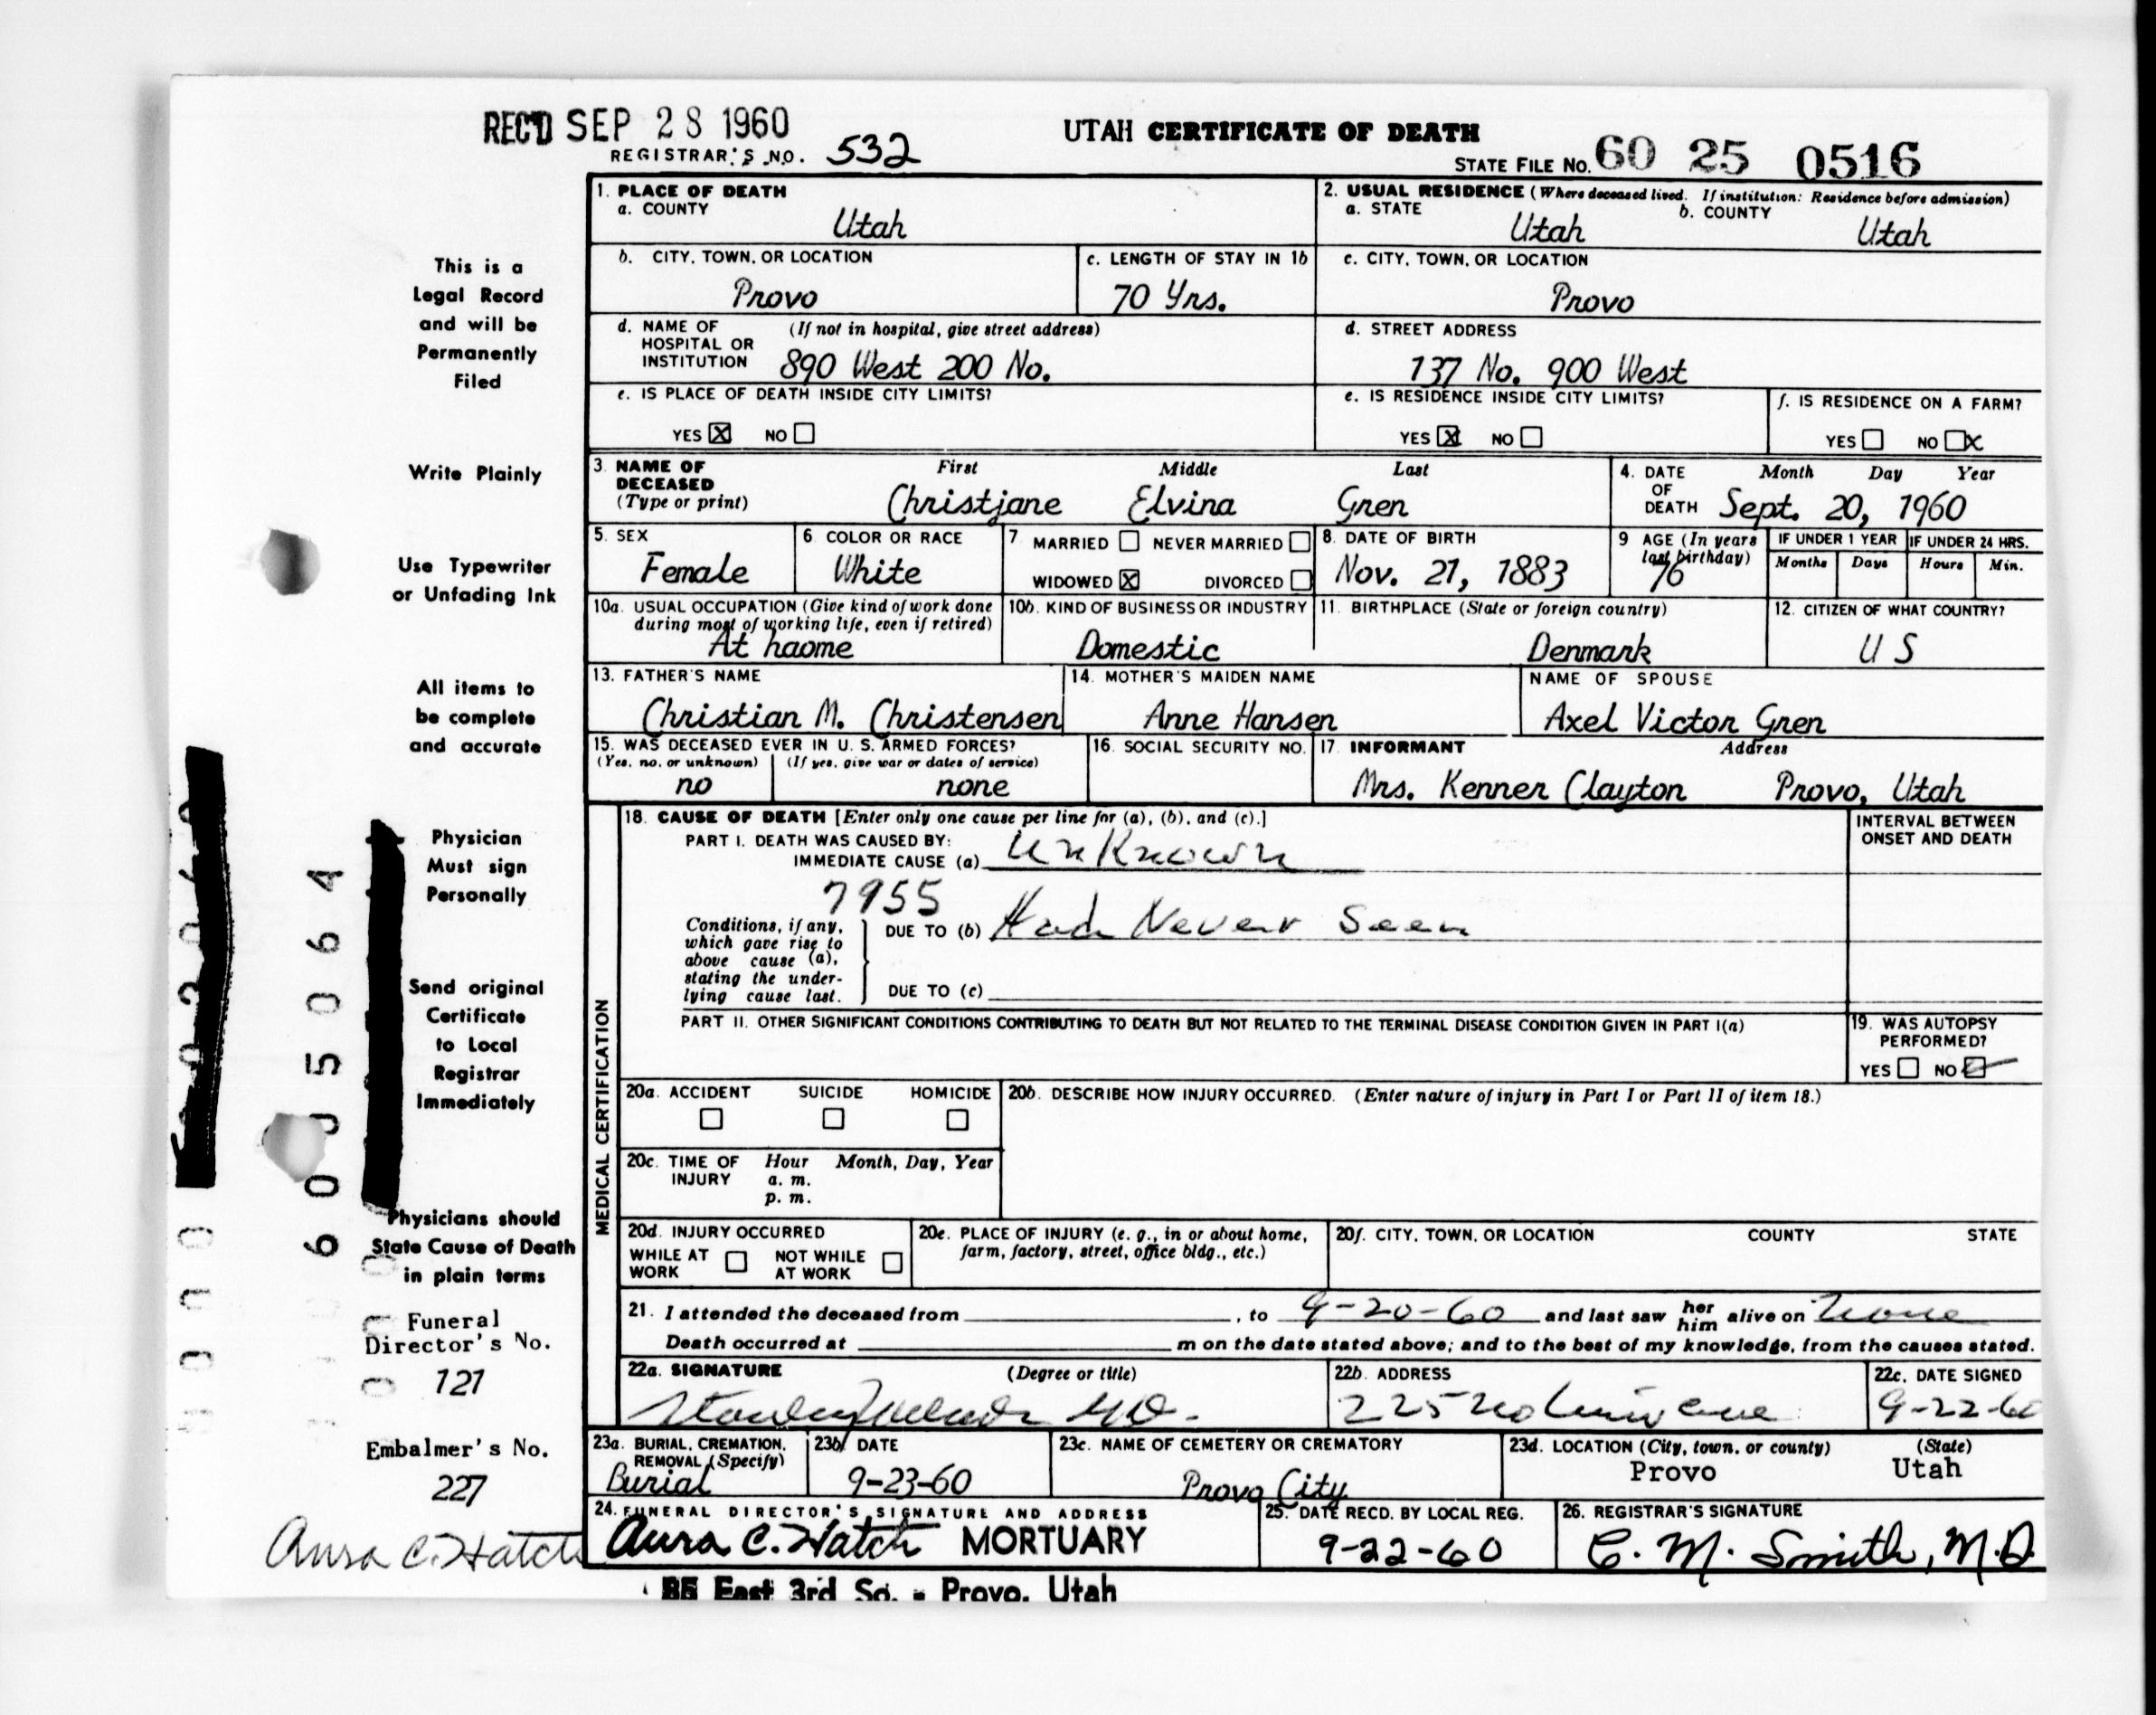 REC'D SEP 28 1960
REGISTRAR'S NO. 532
UTAH CERTIFICATE OF DEATH
STATE FILE NO. 60 25 0516
This is a
Legal Record
and will be
Permanently
Filed
Write Plainly
Use Typewriter
or Unfading Ink
All items to
be complete
and accurate
Physician
Must sign
Personally
Send original
Certificate
to Local
Registrar
Immediately
Physicians should
State Cause of Death
in plain terms
Funeral
Director's No.
121
Embalmer's No.
227
Aura C. Hatch
1. PLACE OF DEATH
a. COUNTY
Utah
2. USUAL RESIDENCE (Where deceased lived. If institution: Residence before admission)
a. STATE b. COUNTY
Utah Utah
b. CITY, TOWN, OR LOCATION
Provo
c. LENGTH OF STAY IN 1b
70 Yrs.
c. CITY, TOWN, OR LOCATION
Provo
d. NAME OF (If not in hospital, give street address)
HOSPITAL OR
INSTITUTION 890 West 200 No.
d. STREET ADDRESS
137 No. 900 West
e. IS PLACE OF DEATH INSIDE CITY LIMITS?
YES X NO
e. IS RESIDENCE INSIDE CITY LIMITS?
YES X NO
f. IS RESIDENCE ON A FARM?
YES NO X
3. NAME OF First Middle Last
DECEASED
(Type or print) Christjane Elvina Gren
4. DATE Month Day Year
OF
DEATH Sept. 20, 1960
5. SEX
Female
6. COLOR OR RACE
White
7. MARRIED NEVER MARRIED
WIDOWED X DIVORCED
8. DATE OF BIRTH
Nov. 21, 1883
9. AGE (In years
last birthday)
76
IF UNDER 1 YEAR IF UNDER 24 HRS.
Months Days Hours Min.
10a. USUAL OCCUPATION (Give kind of work done
during most of working life, even if retired)
At haome
10b. KIND OF BUSINESS OR INDUSTRY
Domestic
11. BIRTHPLACE (State or foreign country)
Denmark
12. CITIZEN OF WHAT COUNTRY?
U S
13. FATHER'S NAME
Christian M. Christensen
14. MOTHER'S MAIDEN NAME
Anne Hansen
NAME OF SPOUSE
Axel Victor Gren
15. WAS DECEASED EVER IN U. S. ARMED FORCES?
(Yes, no, or unknown) (If yes, give war or dates of service)
no none
16. SOCIAL SECURITY NO.
17. INFORMANT Address
Mrs. Kenner Clayton Provo, Utah
MEDICAL CERTIFICATION
18. CAUSE OF DEATH [Enter only one cause per line for (a), (b), and (c).]
PART I. DEATH WAS CAUSED BY:
IMMEDIATE CAUSE (a) Unknown
7955
Conditions, if any,
which gave rise to
above cause (a),
stating the under-
lying cause last.
DUE TO (b) Had Never Seen
DUE TO (c)
INTERVAL BETWEEN
ONSET AND DEATH
PART II. OTHER SIGNIFICANT CONDITIONS CONTRIBUTING TO DEATH BUT NOT RELATED TO THE TERMINAL DISEASE CONDITION GIVEN IN PART I(a)
19. WAS AUTOPSY
PERFORMED?
YES NO
20a. ACCIDENT SUICIDE HOMICIDE
20b. DESCRIBE HOW INJURY OCCURRED. (Enter nature of injury in Part I or Part II of item 18.)
20c. TIME OF Hour Month, Day, Year
INJURY a. m.
p. m.
20d. INJURY OCCURRED
WHILE AT NOT WHILE
WORK AT WORK
20e. PLACE OF INJURY (e. g., in or about home,
farm, factory, street, office bldg., etc.)
20f. CITY, TOWN, OR LOCATION COUNTY STATE
21. I attended the deceased from , to 9-20-60 and last saw her him alive on None
Death occurred at m on the date stated above; and to the best of my knowledge, from the causes stated.
22a. SIGNATURE (Degree or title)
MD.
22b. ADDRESS
225 No
22c. DATE SIGNED
9-22-60
23a. BURIAL, CREMATION,
REMOVAL (Specify)
Burial
23b. DATE
9-23-60
23c. NAME OF CEMETERY OR CREMATORY
Provo City
23d. LOCATION (City, town, or county) (State)
Provo Utah
24. FUNERAL DIRECTOR'S SIGNATURE AND ADDRESS
Aura C. Hatch MORTUARY
East 3rd So. - Provo, Utah
25. DATE RECD. BY LOCAL REG.
9-22-60
26. REGISTRAR'S SIGNATURE
C. M. Smith, M.D.